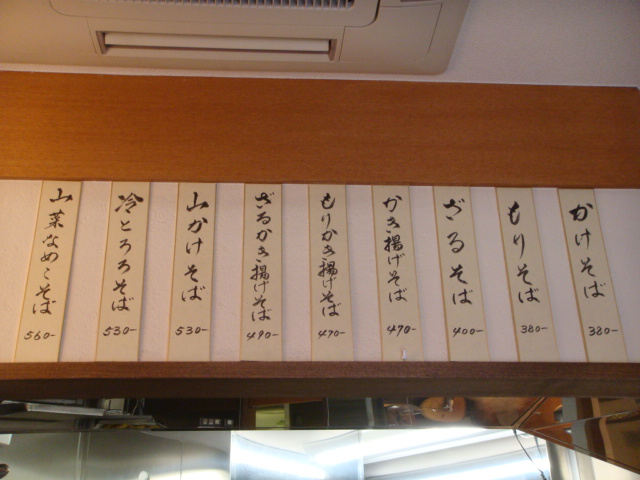 かけそば
380-
もりそば
380-
ざるそば
400-
かき揚げそば
470-
もりかき揚げそば
470-
ざるかき揚げそば
490-
山かけそば
530-
冷とろろそば
530-
山菜なめこそば
560-